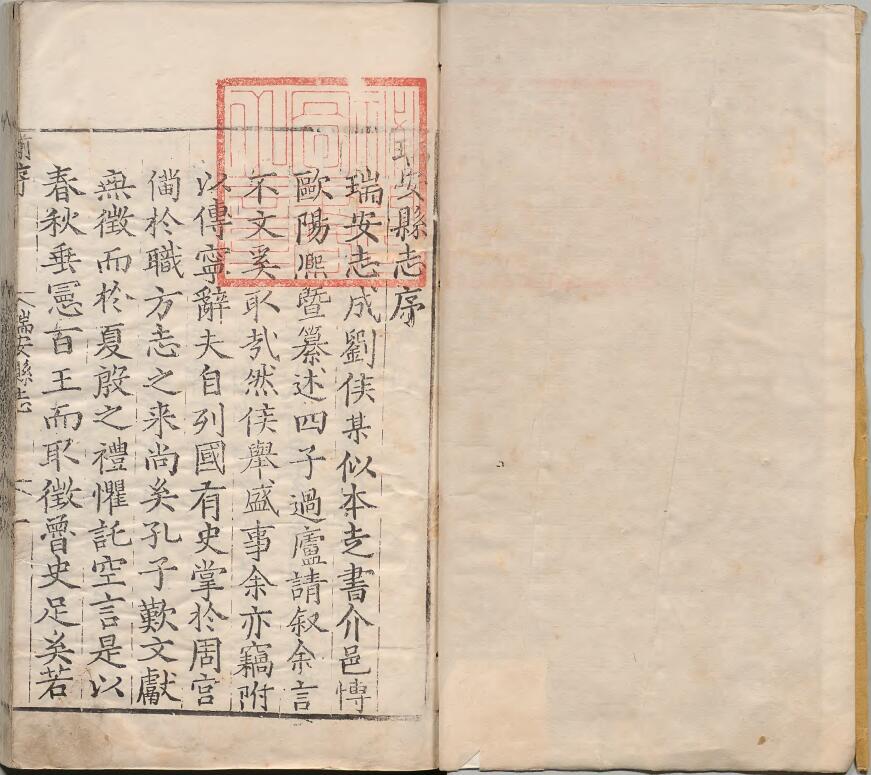 瑞安縣志序
瑞安志成劉侯某似本走書介邑愽
歐陽凞暨纂述四子過廬請叙余言
不文奚取㢤然侯舉盛事余亦竊附
以傳寧辭夫自列國有史掌於周官
俻於職方志之来尚矣孔子歎文獻
無徵而於夏殷之禮懼託空言是以
春秋垂憲百王而取徵魯史足矣若
序 瑞安縣志 一